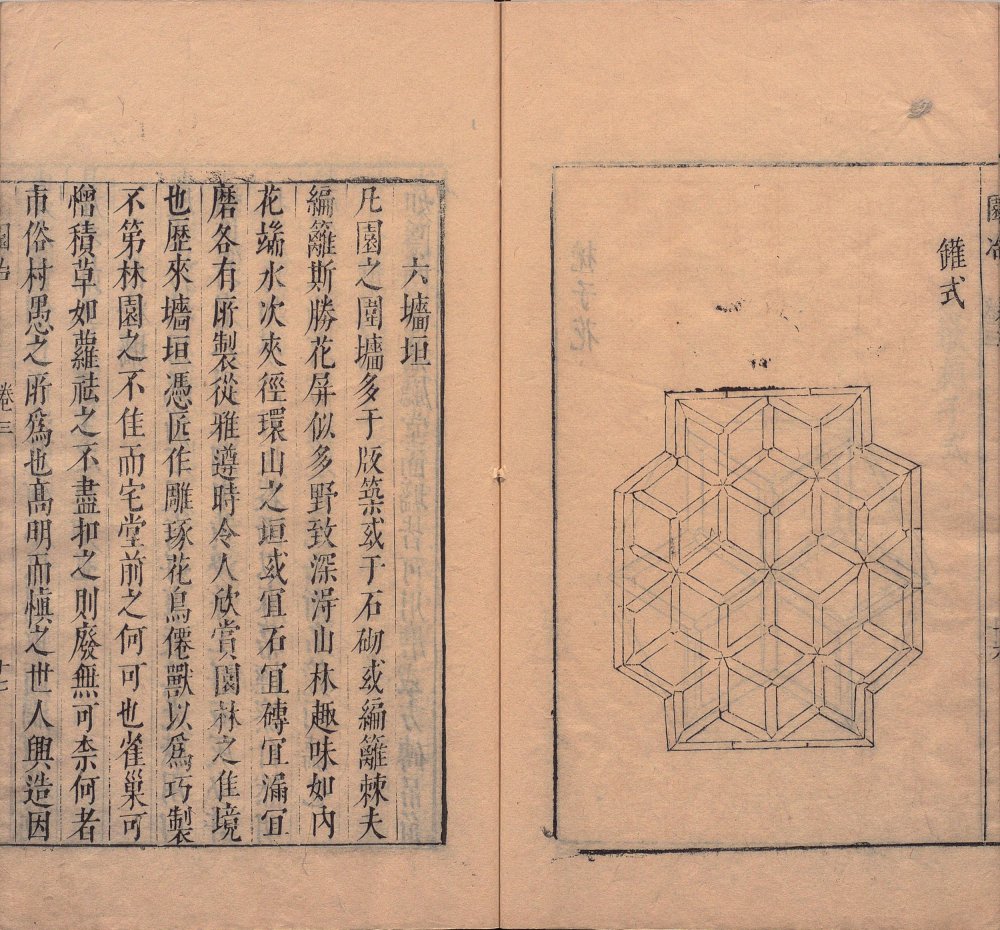 園冶
罐式
六墻垣
凡園之圍墻多于版築或于石砌或編籬棘夫
編籬斯勝花屏似多野致深得山林趣味如内
花端水次夾徑環山之垣或宜石宜磚宜漏宜
磨各有所製從雅遵時令人欣賞園林之佳境
也歷來墻垣憑匠作雕琢花鳥僊獸以爲巧製
不第林園之不佳而宅堂前之何可也雀巢可
憎積草如蘿祛之不盡扣之則廢無可柰何者
市俗村愚之所爲也髙明而愼之世人興造因
園冶 卷三 十七